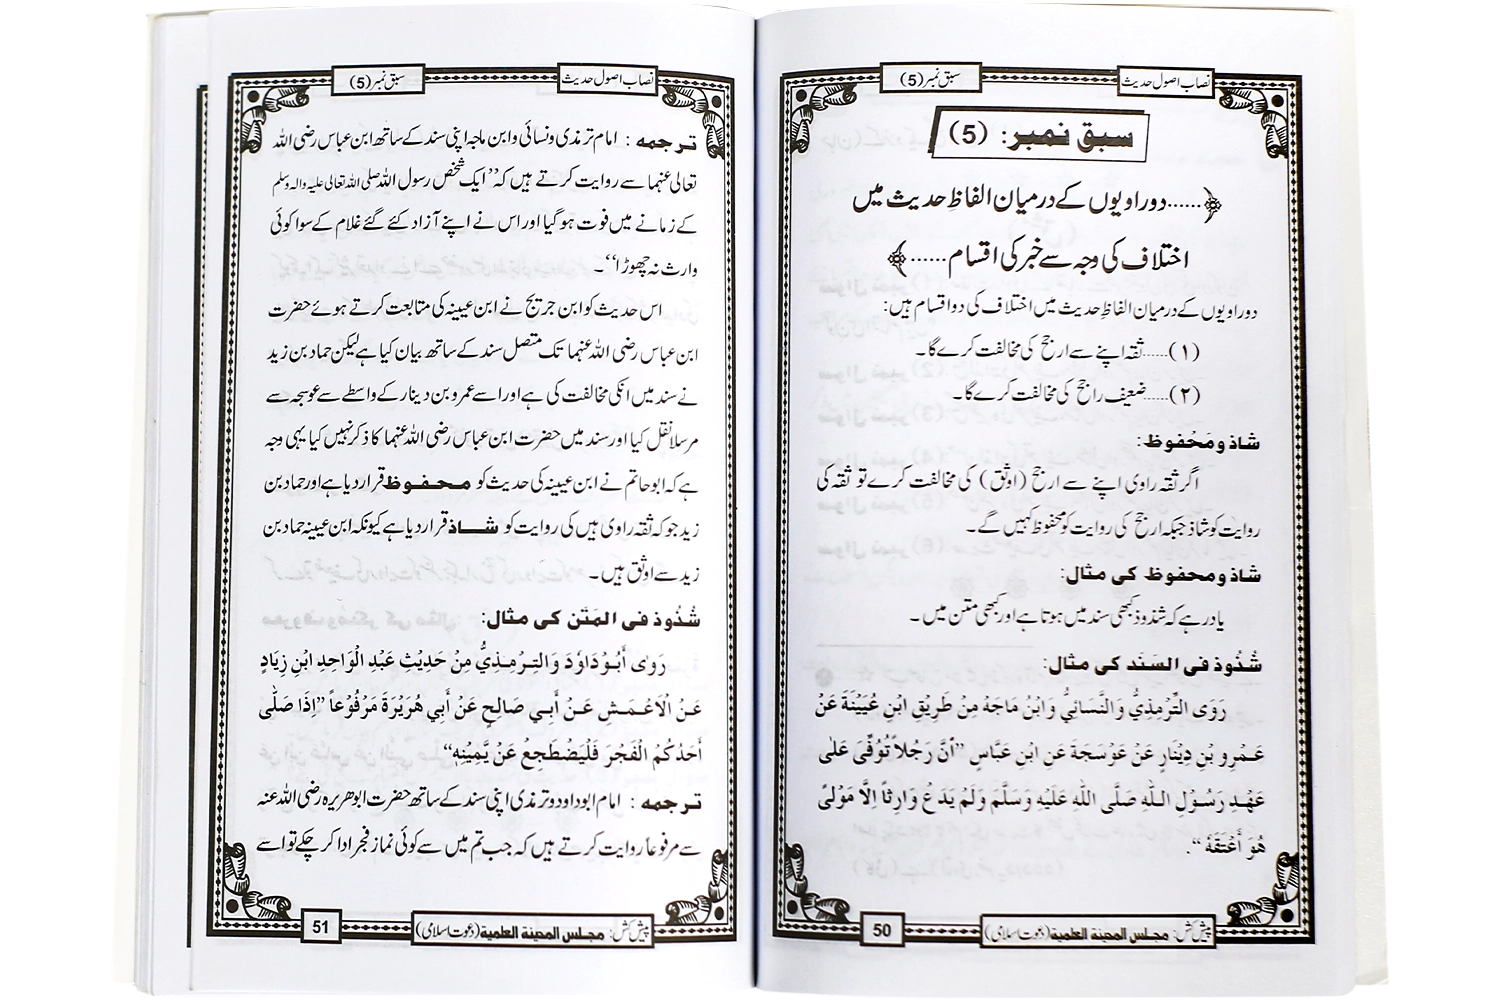 نصاب اصول حدیث
سبق نمبر (5)
سبق نمبر: (5)
﴿......دو راویوں کے درمیان الفاظِ حدیث میں
اختلاف کی وجہ سے خبر کی اقسام......﴾
دو راویوں کے درمیان الفاظِ حدیث میں اختلاف کی دو اقسام ہیں:
(۱)......ثقہ اپنے سے ارجح کی مخالفت کرے گا۔
(۲)......ضعیف راجح کی مخالفت کرے گا۔
شاذ و مَحْفُوظ:
اگر ثقہ راوی اپنے سے ارجح (اوثق) کی مخالفت کرے تو ثقہ کی
روایت کو شاذ جبکہ ارجح کی روایت کو محفوظ کہیں گے۔
شاذ و محفوظ کی مثال:
یاد رہے کہ شذوذ کبھی سند میں ہوتا ہے اور کبھی متن میں۔
شُذُوذ فی السَنَد کی مثال:
رَوَى التِّرْمِذِيُّ وَالنَّسَائِيُّ وَابْنُ مَاجَه مِنْ طَرِيْقِ ابْنِ عُيَيْنَةَ عَنْ
عَمْرِو بْنِ دِيْنَارٍ عَنْ عَوْسَجَةَ عَنِ ابْنِ عَبَّاسٍ ”أَنَّ رَجُلاً تُوُفِّىَ عَلٰى
عَهْدِ رَسُوْلِ اللّٰهِ صَلَّى اللّٰهُ عَلَيْهِ وَسَلَّمَ وَلَمْ يَدَعْ وَارِثاً اِلَّا مَوْلىً
هُوَ أَعْتَقَهُ“.
پیش کش: مجلس المدینة العلمیة (دعوت اسلامی)
50
نصاب اصول حدیث
سبق نمبر (5)
ترجمہ: امام ترمذی و نسائی و ابن ماجہ اپنی سند کے ساتھ ابن عباس رضی اللہ
تعالیٰ عنہما سے روایت کرتے ہیں کہ”ایک شخص رسول اللہ صلی اللہ تعالیٰ علیہ والہ وسلم
کے زمانے میں فوت ہو گیا اور اس نے اپنے آزاد کئے گئے غلام کے سوا کوئی
وارث نہ چھوڑا“۔
اس حدیث کو ابن جریج نے ابن عیینہ کی متابعت کرتے ہوئے حضرت
ابن عباس رضی اللہ عنہما تک متصل سند کے ساتھ بیان کیا ہے لیکن حماد بن زید
نے سند میں انکی مخالفت کی ہے اور اسے عمرو بن دینار کے واسطے سے عوسجہ سے
مرسلا نقل کیا اور سند میں حضرت ابن عباس رضی اللہ عنہما کا ذکر نہیں کیا یہی وجہ
ہے کہ ابو حاتم نے ابن عیینہ کی حدیث کو محفوظ قرار دیا ہے اور حماد بن
زید جو کہ ثقہ راوی ہیں کی روایت کو شاذ قرار دیا ہے کیونکہ ابن عیینہ حماد بن
زید سے اوثق ہیں۔
شُذُوذ فی المَتَن کی مثال:
رَوٰى أَبُوْدَاوٗدَ وَالتِّرْمِذِيُّ مِنْ حَدِيْثِ عَبْدِ الْوَاحِدِ ابْنِ زِيَادٍ
عَنِ الْاَعْمَشِ عَنْ أَبِي صَالِحٍ عَنْ أَبِي هُرَيْرَةَ مَرْفُوْعاً ”اِذَا صَلّٰى
أَحَدُكُمُ الْفَجْرَ فَلْيَضْطَجِعْ عَنْ يَّمِيْنِهِ“
ترجمہ: امام ابو داود و ترمذی اپنی سند کے ساتھ حضرت ابو ھریرہ رضی اللہ عنہ
سے مرفوعاً روایت کرتے ہیں کہ جب تم میں سے کوئی نماز فجر ادا کر چکے تو اسے
پیش کش: مجلس المدینة العلمیة (دعوت اسلامی)
51